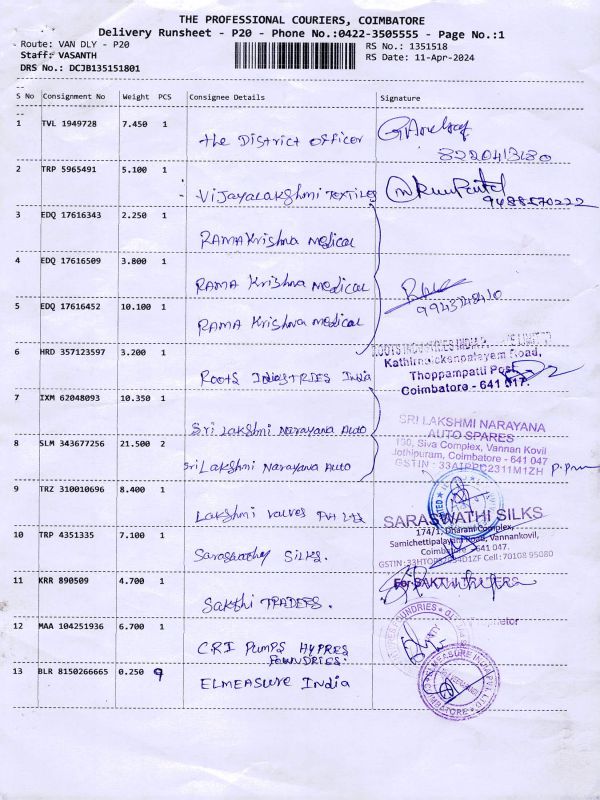 THE PROFESSIONAL COURIERS, COIMBATORE
Delivery Runsheet - P20 - Phone No.:0422-3505555 - Page No.:1
Route: VAN DLY - P20
RS No.: 1351518
Staff: VASANTH
RS Date: 11-Apr-2024
DRS No.: DCJB135151801
S No Consignment No Weight PCS Consignee Details Signature
1 TVL 1949728 7.450 1
the District officer
8220413680
2 TRP 5965491 5.100 1
Vijayalakshmi Textiles
9488570222
3 EDQ 17616343 2.250 1
RAMAKrishna medical
4 EDQ 17616509 3.800 1
RAMA Krishna medical
5 EDQ 17616452 10.100 1
RAMA Krishna medical
9943748410
6 HRD 357123597 3.200 1
ROOTS INDUSTRIES INDIA
Road,
Thoppampatti Post
Coimbatore - 641 017.
Roots Indiastries India
7 IXM 62048093 10.350 1
Sri Lakshmi Narayana Auto
SRI LAKSHMI NARAYANA
AUTO SPARES
Siva Complex, Vannan Kovil
Jothipuram, Coimbatore - 641 047
8 SLM 343677256 21.500 2
Sri Lakshmi Narayana Auto
9 TRZ 310010696 8.400 1
Lakshmi valves Pvt Ltd
SARASWATHI SILKS
174/1, Dharani Complex,
Samichettipalayam Road, Vannankovil,
Coimbatore - 641 047.
Cell: 70108 95080
10 TRP 4351335 7.100 1
Saraswathy Silks.
11 KRR 890509 4.700 1
For SAKTHI TRADERS
Sakthi TRADERS.
12 MAA 104251936 6.700 1
CRI Pumps HYPRES
FOUNDRIES.
13 BLR 8150266665 0.250 9
ELMEASURE India